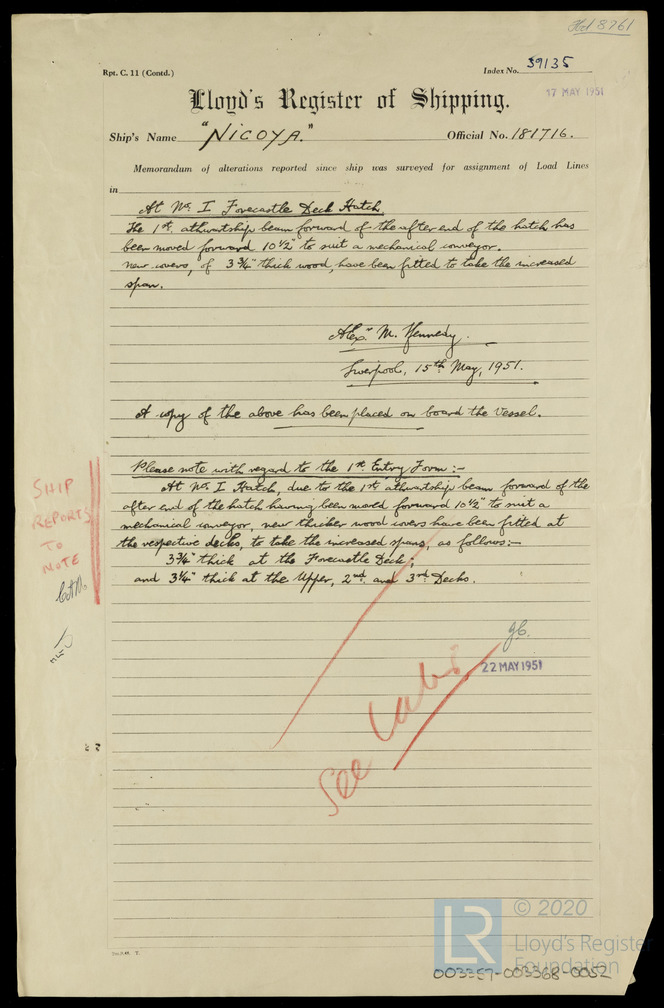 Rpt. C. 11 (Contd.)
Index No. 39135
17 MAY 1951
Lloyd's Register of Shipping.
Ship's Name "NICOYA."
Official No. 181716.
Memorandum of alterations reported since ship was surveyed for assignment of Load Lines
in
At No. I Forecastle Deck Hatch.
The 1st. athwartship beam forward of the after end of the hatch has
been moved forward 10½" to suit a mechanical conveyor.
New covers, of 3¾" thick wood, have been fitted to take the increased
span.
Alexr. M. Kennedy.
Liverpool, 15th May, 1951.
A copy of the above has been placed on board the Vessel.
Please note with regard to the 1st Entry Form:-
At No. I Hatch, due to the 1st athwartship beam forward of the
after end of the hatch having been moved forward 10½" to suit a
mechanical conveyor, new thicker wood covers have been fitted at
the respective decks, to take the increased spans, as follows:-
3¾" thick at the Forecastle Deck;
and 3¼" thick at the Upper, 2nd. and 3rd. Decks.
SHIP
REPORTS
TO
NOTE
22 MAY 1951
See
LR
© 2020
Lloyd's Register
Foundation
003367-003368-0052